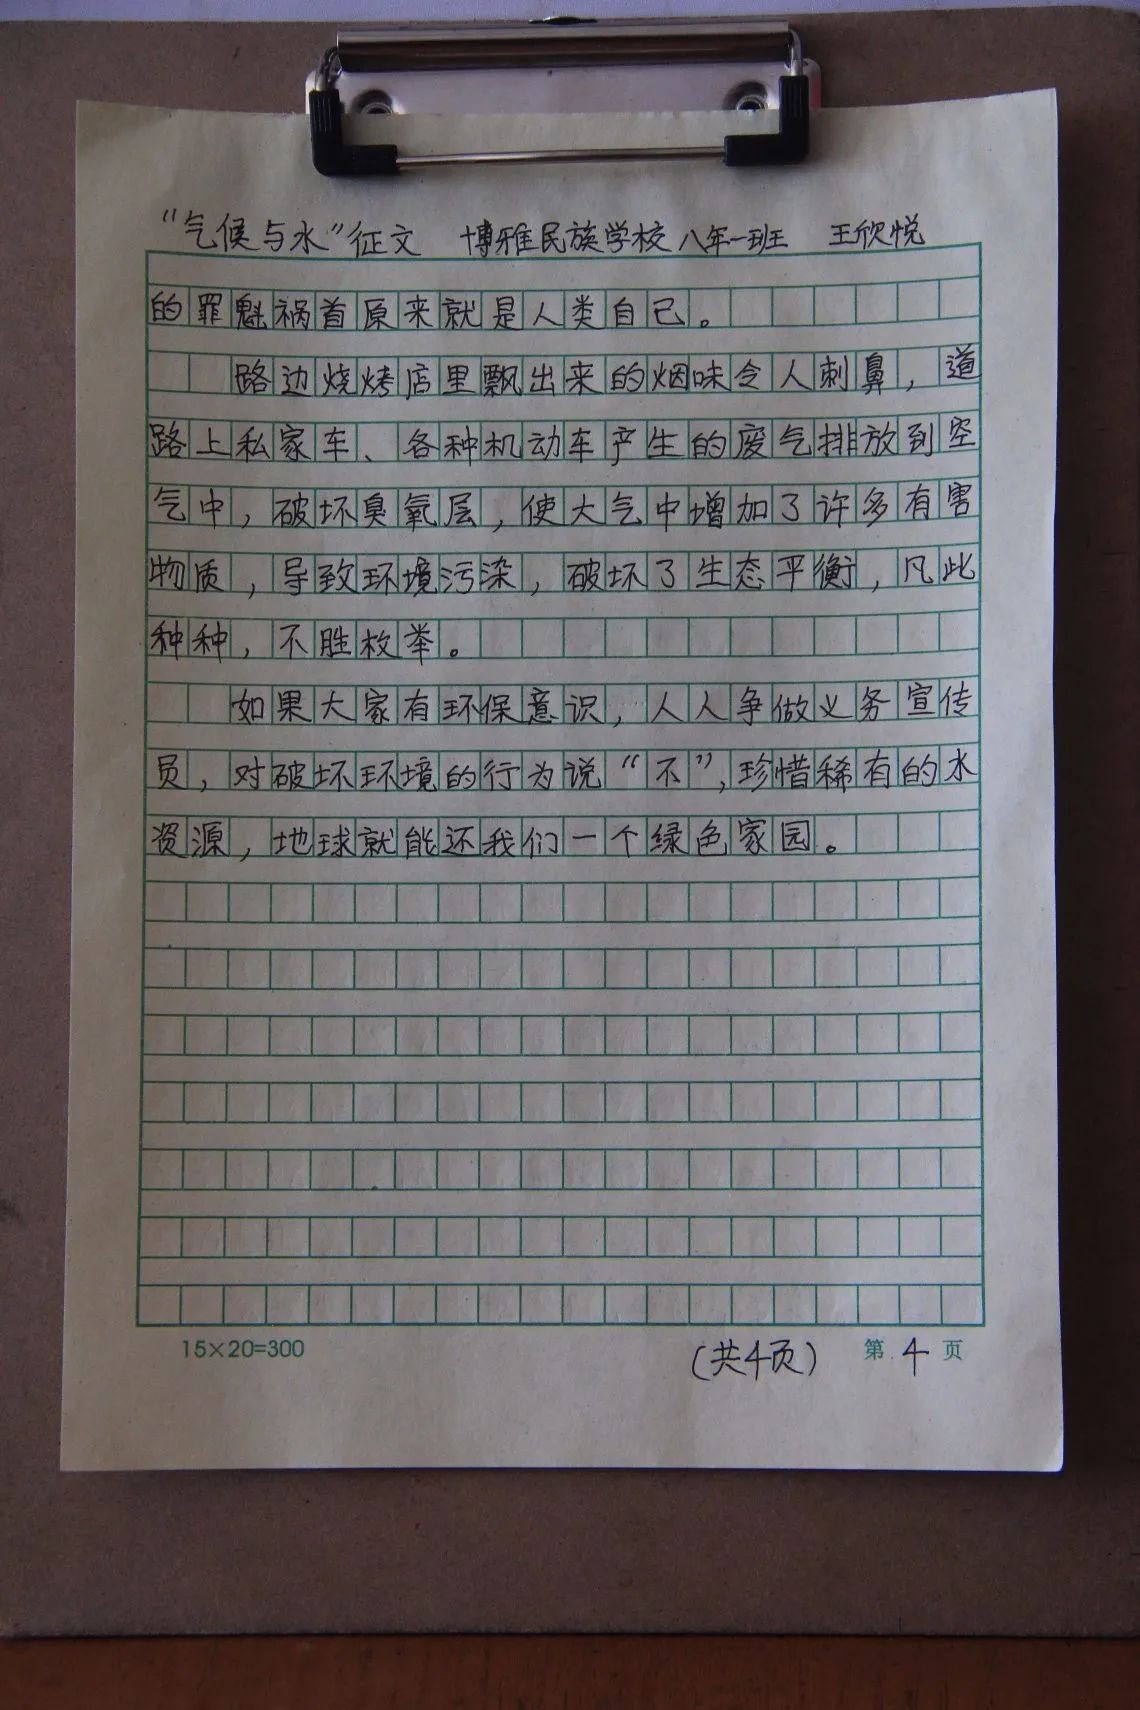 “气候与水”征文 博雅民族学校 八年一班 王欣悦
的罪魁祸首原来就是人类自己。
路边烧烤店里飘出来的烟味令人刺鼻，道
路上私家车、各种机动车产生的废气排放到空
气中，破坏臭氧层，使大气中增加了许多有害
物质，导致环境污染，破坏了生态平衡，凡此
种种，不胜枚举。
如果大家有环保意识，人人争做义务宣传
员，对破坏环境的行为说“不”，珍惜稀有的水
资源，地球就能还我们一个绿色家园。
15×20=300 （共4页） 第 4 页